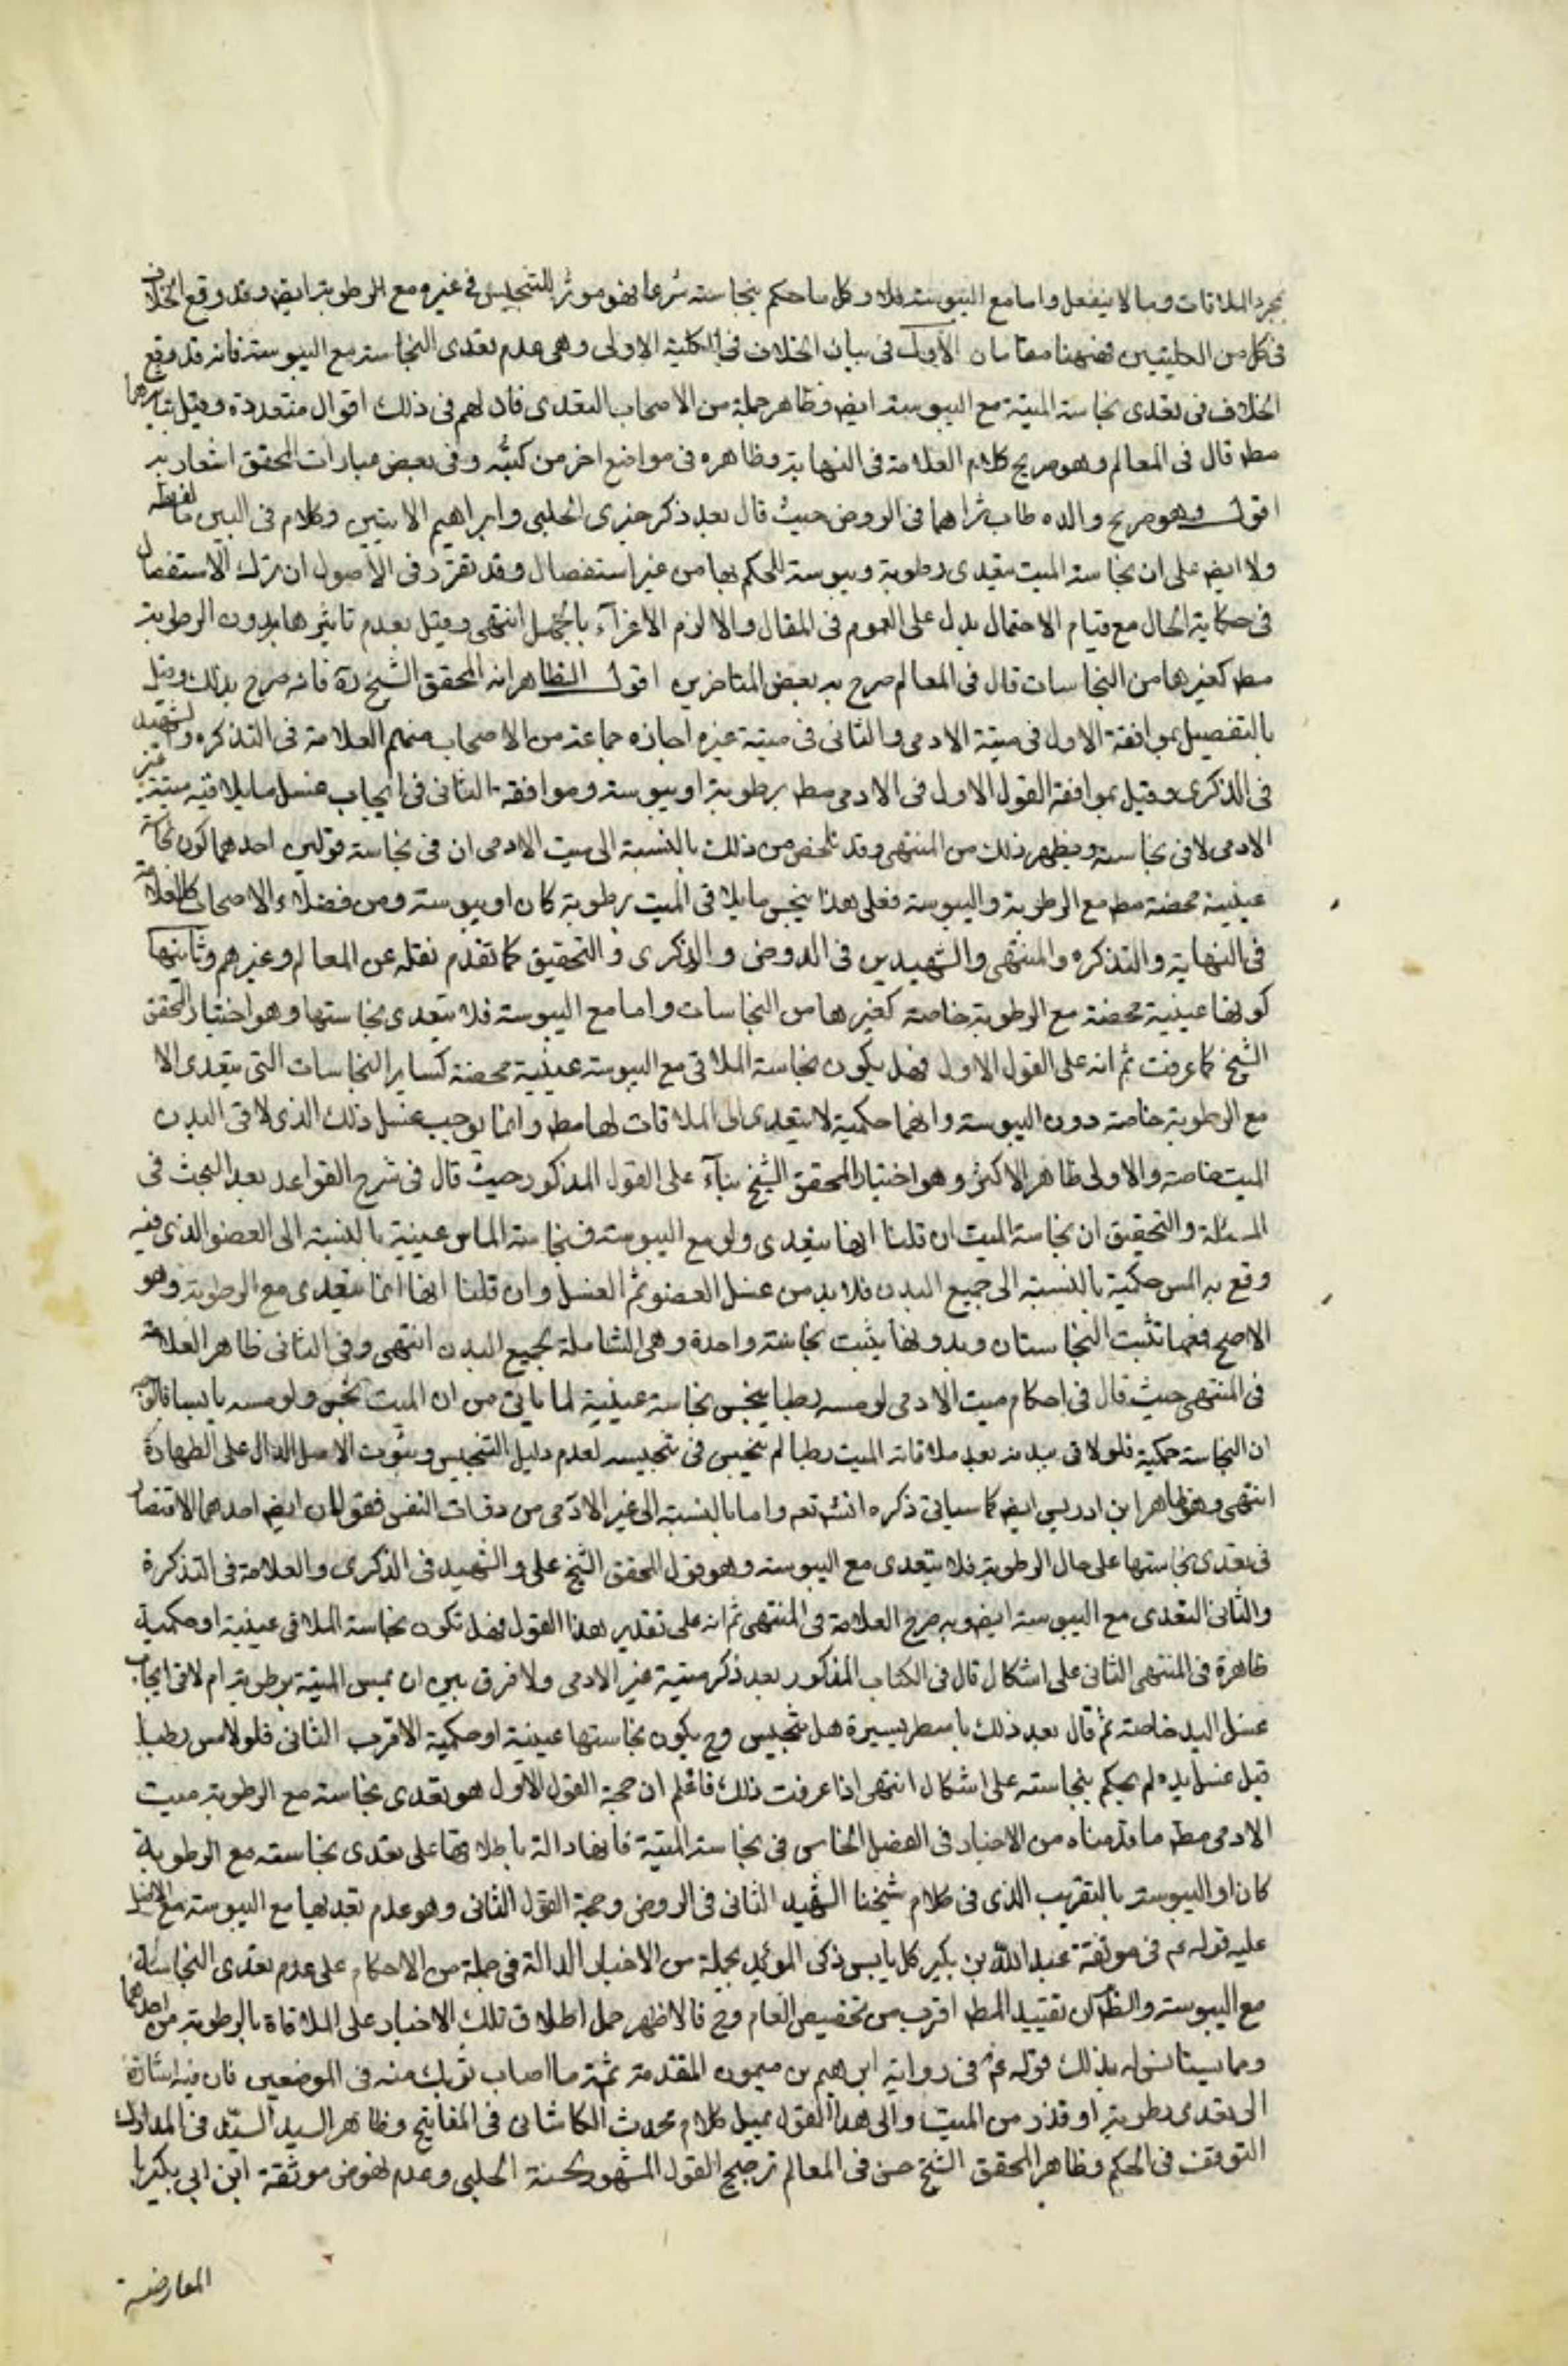 بمجرد الملاقات وبما لا ينفعل واما مع اليبوسة فلا وكل ما حكم بنجاسته شرعا فهو موثر للتنجيس فى غيره مع الرطوبة ايض وقد وقع الخلاف
فى كل من الكليتين فههنا مقامان الأول فى بيان الخلاف فى الكلية الاولى وهى عدم تعدى النجاسة مع اليبوسة فانه قد وقع
الخلاف فى تعدى نجاسة الميتة مع اليبوسة ايض وظاهر جملة من الاصحاب التعدى فان لهم فى ذلك اقوال متعددة وقيل بتاثيرها
مط قال فى المعالم وهو صريح كلام العلامة فى النهاية وظاهره فى مواضع اخر من كتبه وفى بعض عبارات المحقق اشعار به
اقول وهو صريح والده طاب ثراهما فى الروض حيث قال بعد ذكر خبرى الحلبى وابراهيم الاتيتين وكلام فى البين ما لفظه
ولا ايض على ان نجاسة الميت تتعدى رطوبة ويبوسة للحكم بها من غير استفصال وقد تقرر فى الأصول ان ترك الاستفصال
فى حكاية الحال مع قيام الاحتمال يدل على العموم فى المقال والا لزم الاغرآء بالجهل انتهى وقيل بعدم تاثيرها بدون الرطوبة
مط كغيرها من النجاسات قال فى المعالم صرح به بعض المتاخرين اقول الظاهر انه المحقق الشيخ ره فانه صرح بذلك وقيل
بالتفصيل بموافقة الاول فى ميتة الادمى والثانى فى ميتة غيره اجازه جماعة من الاصحاب منهم العلامة فى التذكره والشهيد
فى الذكرى وقيل بموافقة القول الاول فى الادمى مط برطوبة او يبوسة وموافقة الثانى فى ايجاب غسل ما يلاقيه ميتة غير
الادمى لا فى نجاسته ويظهر ذلك من المنتهى وقد تلخص من ذلك بالنسبة الى ميت الادمى ان فى نجاسته قولين احدهما كون نجاسة
عينية محضة مط مع الرطوبة واليبوسة فعلى هذا ينجس ما يلاقى الميت برطوبة كان او يبوسة ومن فضلاء الاصحاب كالعلامة
فى النهاية والتذكره والمنتهى والشهيدين فى الروض والذكرى والتحقيق كما تقدم نقله عن المعالم وغيرهم وثانيها
كونها عينية محضة مع الرطوبة خاصة كغيرها من النجاسات واما مع اليبوسة فلا تتعدى نجاستها وهو اختيار المحقق
الشيخ كما عرفت ثم انه على القول الاول فهل يكون نجاسة الملاقى مع اليبوسة عينية محضة كساير النجاسات التى يتعدى الا
مع الرطوبة خاصة دون اليبوسة وانها حكمية لا تتعدى الى الملاقات لها مط وانما يوجب غسل ذلك الذى لاقى البدن
الميت خاصة والاولى ظاهر الاكثر وهو اختيار المحقق الشيخ بنآء على القول المذكور حيث قال فى شرح القواعد بعد البحث فى
المسئلة والتحقيق ان نجاسة الميت ان قلنا انها تتعدى ولو مع اليبوسة فنجاسة الماس عينية بالنسبة الى العضو الذى فيه
وقع به المس حكمية بالنسبة الى جميع البدن فلا بد من غسل العضو ثم الغسل وان قلنا انها انما تتعدى مع الرطوبة وهو
الاصح فمعها تثبت النجاستان وبدونها يثبت نجاسة واحدة وهى الشاملة لجميع البدن انتهى وفى الثانى ظاهر العلامة
فى المنتهى حيث قال فى احكام ميت الادمى لو مسه رطبا ينجس نجاسة عينية لما ياتى من ان الميت نجس ولو مسه يابسا فالوجه
ان النجاسة حكمية فلو لاقى ببدنه بعد ملاقاته الميت رطبا لم ينجس فى تنجيسه لعدم دليل التنجيس وثبوت الاصل الدال على الطهارة
انتهى وهو ظاهر ابن ادريس ايض كما سياتى ذكره انشه تعه واما بالنسبة الى غير الادمى من ذوات النفس فقولان ايض احدهما الاقتصار
فى تعدى نجاستها على حال الرطوبة فلا يتعدى مع اليبوسة وهو قول المحقق الشيخ على والشهيد فى الذكرى والعلامة فى التذكرة
والثانى التعدى مع اليبوسة ايض وبه صرح العلامة فى المنتهى ثم انه على تقدير هذا القول فهل تكون نجاسة الملاقى عينية او حكمية
ظاهرة فى المنتهى الثانى على اشكال قال فى الكتاب المذكور بعد ذكر ميتة غير الادمى ولا فرق بين ان يمس الميتة برطوبة ام لا فى ايجاب
غسل اليد خاصة ثم قال بعد ذلك باسطر يسيرة هل تنجيس وح يكون نجاستها عينية او حكمية الاقرب الثانى فلو لامس رطبا
قبل غسل يده لم يحكم بنجاسته على اشكال انتهى اذا عرفت ذلك فاعلم ان حجة القول الأول هو تعدى نجاسة مع الرطوبة ميت
الادمى مط ما قدمناه من الاخبار فى الفصل الخامس فى نجاسة الميتة فانها دالة باطلاقها على تعدى نجاسته مع الرطوبة
كان او اليبوسة بالتقريب الذى فى كلام شيخنا الشهيد الثانى فى الروض وحجة القول الثانى وهو عدم تعديها مع اليبوسة مع الاصل
عليه قوله عم فى موثقة عبد الله بن بكير كل يابس ذكى المويد بجملة من الاخبار الدالة فى جملة من الاحكام على عدم تعدى النجاسة
مع اليبوسة والظ ان تقييد المط اقرب من تخصيص العام وح فالاظهر حمل اطلاق تلك الاخبار على الملاقاة بالرطوبة من احدهما
ومما يستانس له بذلك قوله عم فى رواية ابرهيم بن ميمون المتقدمة ثمة ما اصاب ثوبك منه فى الموضعين فان فيه اشارة
الى تعدى رطوبة او قذر من الميت والى هذا القول يميل كلام محدث الكاشانى فى المفاتيح وظاهر السيد السند فى المدارك
التوقف فى الحكم وظاهر المحقق الشيخ حسن فى المعالم ترجيح القول المشهور لحسنة الحلبى وعدم نهوض موثقة ابن ابى بكير با
المعارضة